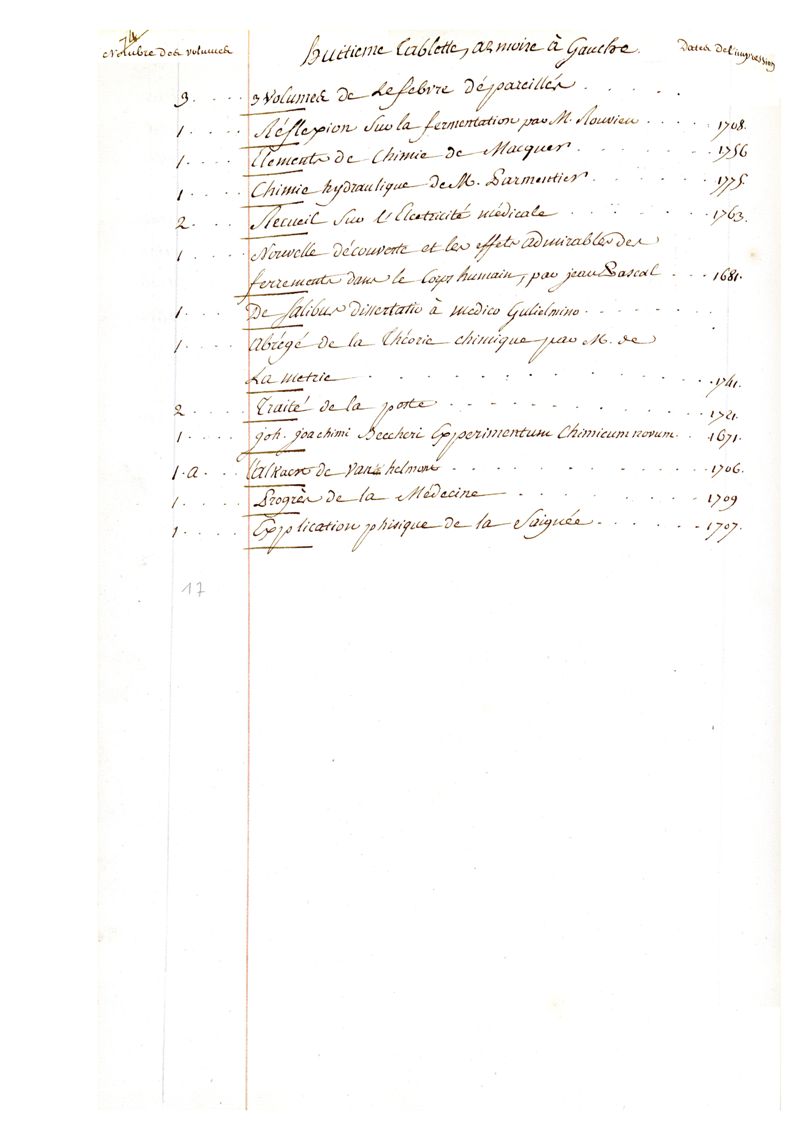 74
Nombre des volumes Huitieme Tablette, armoire à Gauche. Dates de l'impression
3. . . . 3 Volumes de Lefebvre dépareillés . . . . .
1. . . . Réflexion Sur la fermentation par M. Rouvieu . . . . . 1708.
1. . . . Elements de Chimie de Macquer . . . . . . 1756
1. . . . Chimie hydraulique de M. Parmentier . . . . . 1775.
2. . . . Recueil Sur l'Electricité médicale . . . . . . 1763.
1. . . . Nouvelle découverte et les effets admirables des
ferrements dans le Corps humain, par jean Pascal . . . 1681.
1. . . . De Salibus dissertatio à medico Gulielmino . . . . . . .
1. . . . abrégé de la Théorie chimique par M. de
La metrie . . . . . . . . . . . 1741.
2. . . . Traité de la peste . . . . . . . . . 1721.
1. . . . joh. joachimi Beccheri Experimentum Chimicum novum. . 1671.
1. a. . . l'alkaest de Van helmont . . . . . . . . 1706.
1. . . . Progrès de la Médecine . . . . . . 1709
1. . . . Explication phisique de la Saignée . . . . . 1707.
17